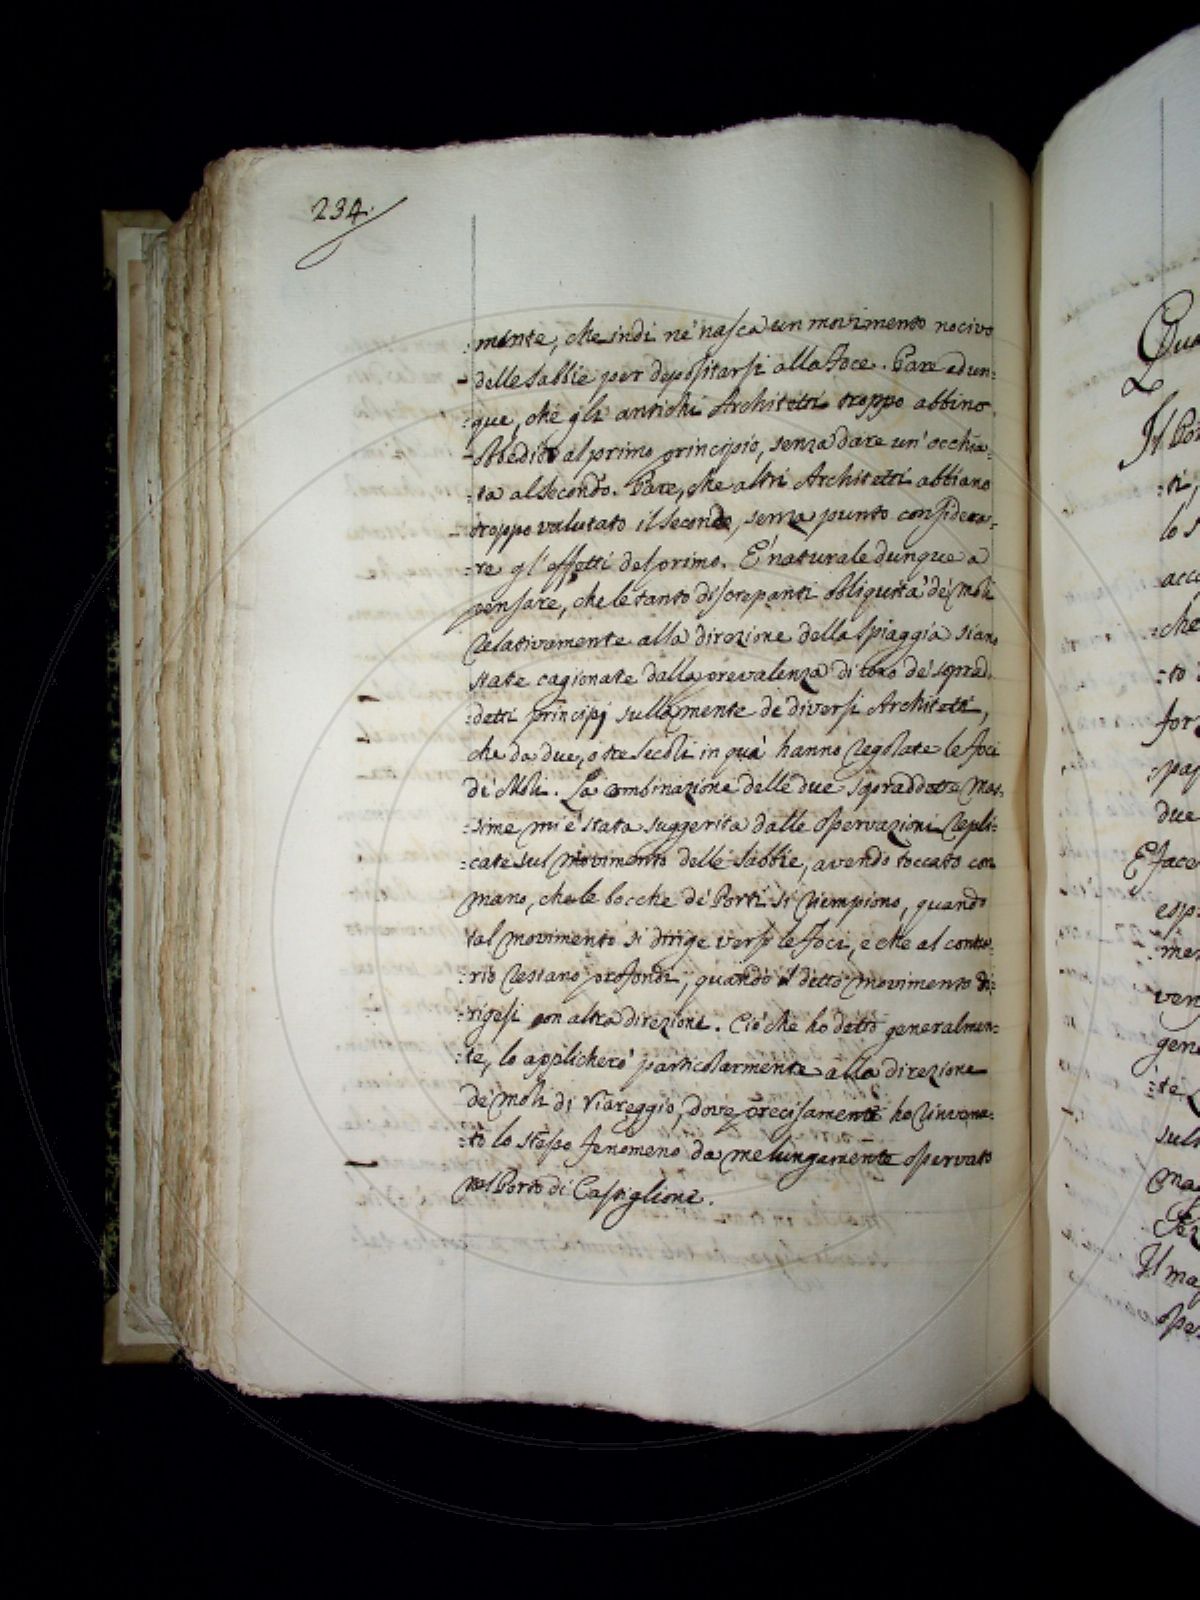 234.
:mente, che indi ne nasca un movimento nocivo
-delle Sabbie per depositarsi alla Foce. Pare adun:
:que, che gli antichi Architetti troppo abbino
-obbedito al primo principio, senza dare un' occhia:
:ta al secondo. Pare, che altri Architetti abbiano
-troppo valutato il secondo, senza punto considera:
:re gl'effetti del primo. E' naturale dunque a
pensare, che le tanto discrepanti obliquità de' Moli
relativamente alla direzione della Spiaggia siano
state cagionate dalla prevalenza di loro de' soprad:
:detti principj sulla mente de' diversi Architetti,
che da due, o tre Secoli in quà hanno regolate le foci
de' Moli. La combinazione delle due sopraddette Mas:
:sime mi è stata suggerita dalle osservazioni repli:
:cate sul movimento delle Sabbie, avendo toccato con
mano, che le bocche de' Porti si riempiono, quando
tal movimento si dirige verso le Foci, e che al contra:
:rio restano profonde, quando il detto movimento di:
:rigesi con altra direzione. Ciò che ho detto generalmen:
:te, lo applicherò particolarmente alla direzione
de' Moli di Viareggio, dove precisamente ho rinvena:
:to lo stesso fenomeno da me lungamente osservato
nel Porto di Castiglione.
Qua
Il Po
:ti,
lo s
acc
che
:to
for
:pas
due
E face
esp
:men
ven
gen
:te
sul
ma
Il ma